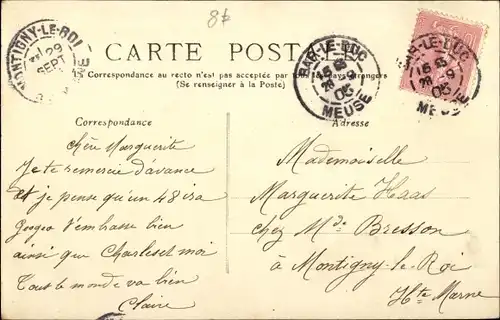 8 f
MONTIGNY-LE-ROI
29
SEPT
CARTE POSTALE
BAR-LE-DUC
16
28 9
05
MEUSE
BAR-LE-DUC
16
28 9
05
MEUSE
Correspondance au recto n'est pas acceptée par tous les pays étrangers
(Se renseigner à la Poste)
Correspondance
Adresse
chère Marguerite
Je te remercie d'avance
et je pense qu'un 48 ira
Georges t'embrasse bien
ainsi que Charles et moi
Tout le monde va bien
Claire
Mademoiselle
Marguerite Haas
chez Mde Bresson
à Montigny-le-Roi
Hte Marne